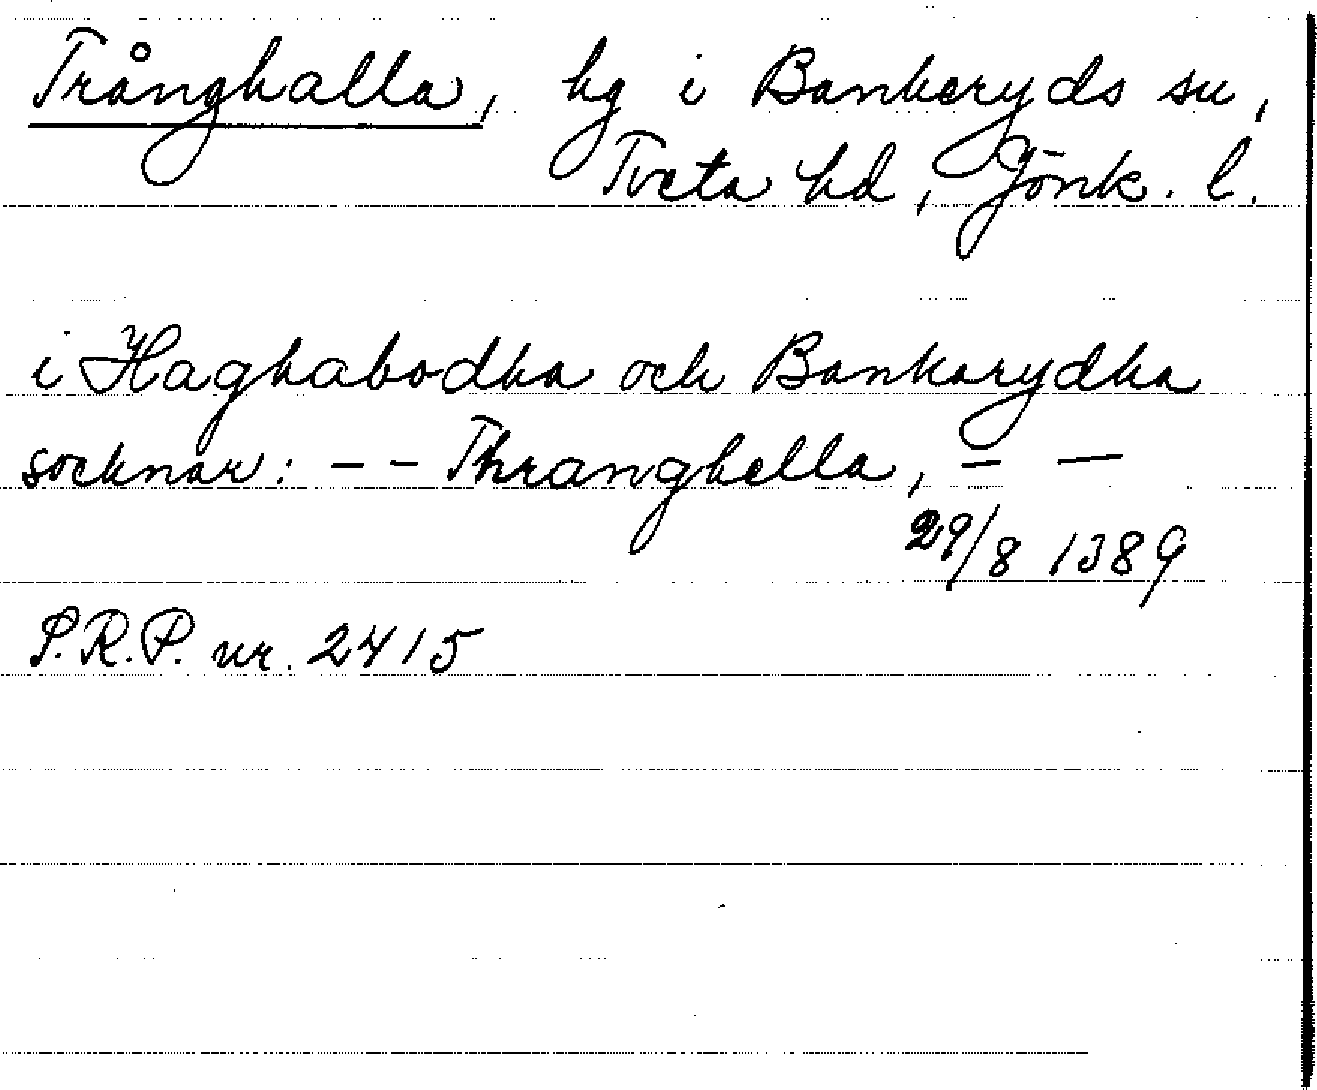 Trånghalla, hg i Bankeryds sn,
Tveta hd, Jönk. l.
i Haghabodha och Bankarydha
socknar: - - Thranghella, - -
29/8 1389
S.R.P. nr. 2415